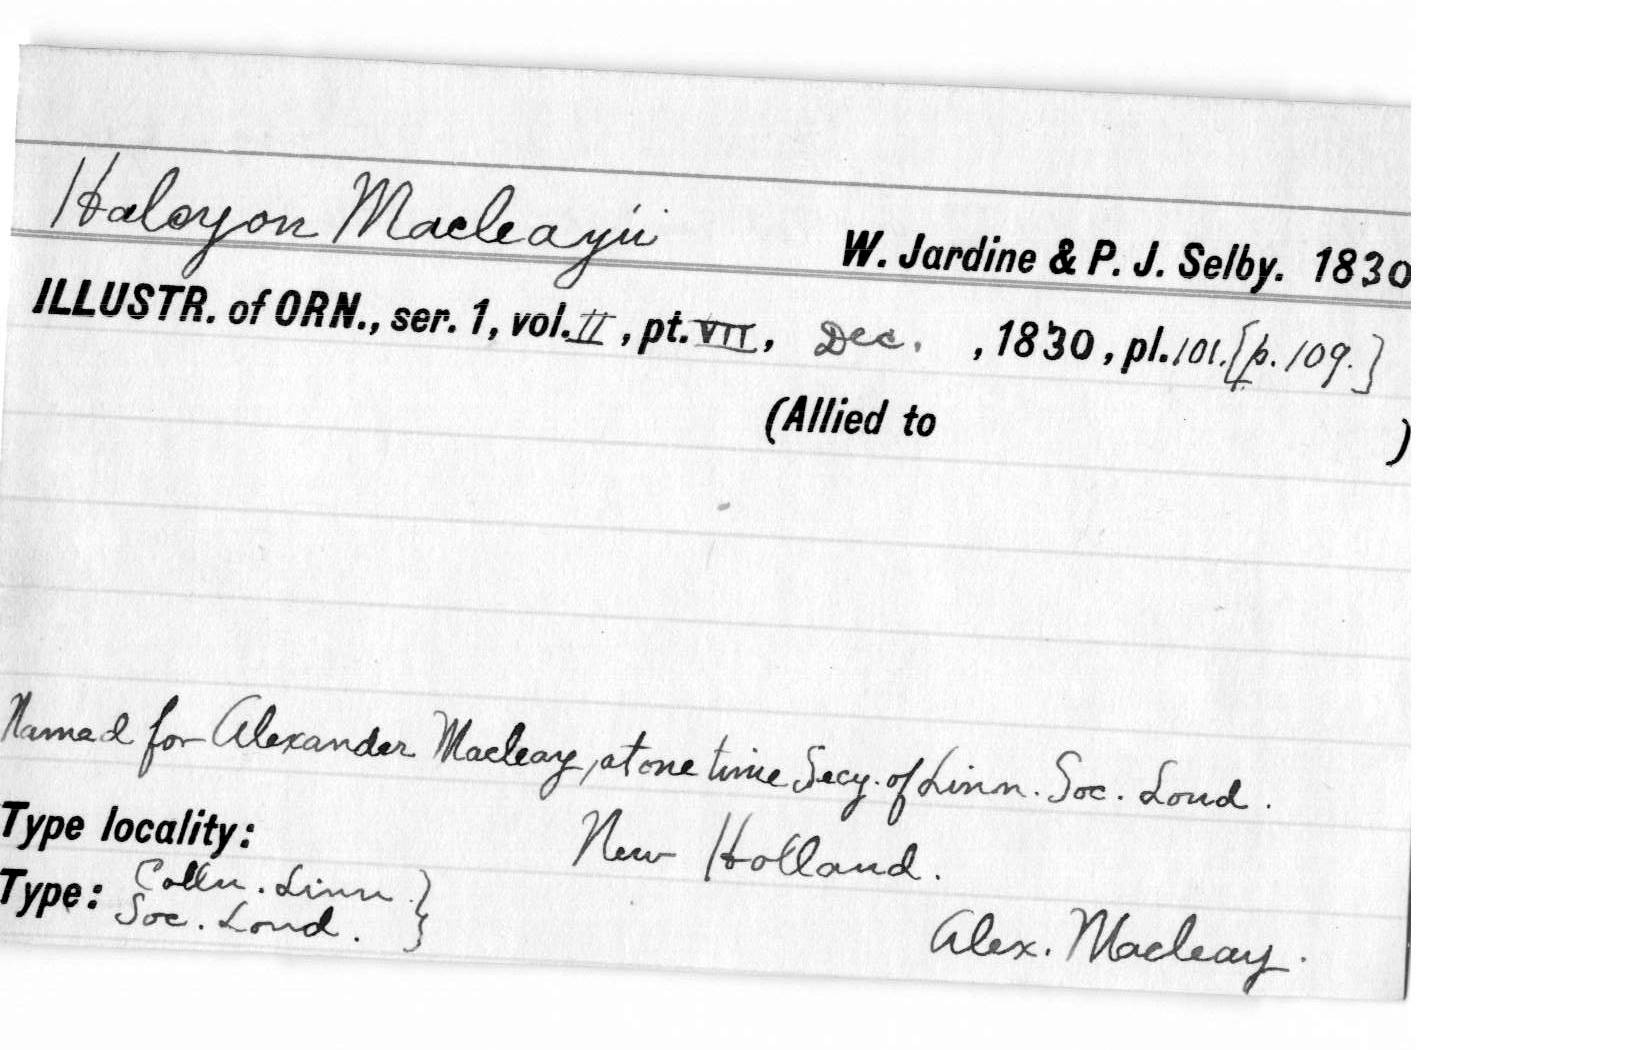 Halcyon Macleayii
W. Jardine & P. J. Selby. 1830
ILLUSTR. of ORN., ser. 1, vol. II, pt. VII, Dec. , 1830, pl. 101. [p. 109.]
(Allied to )
Named for Alexander Macleay, at one time Secy. of Linn. Soc. Lond.
Type locality: New Holland.
Type: Colln. Linn.
Soc. Lond. }
Alex. Macleay.